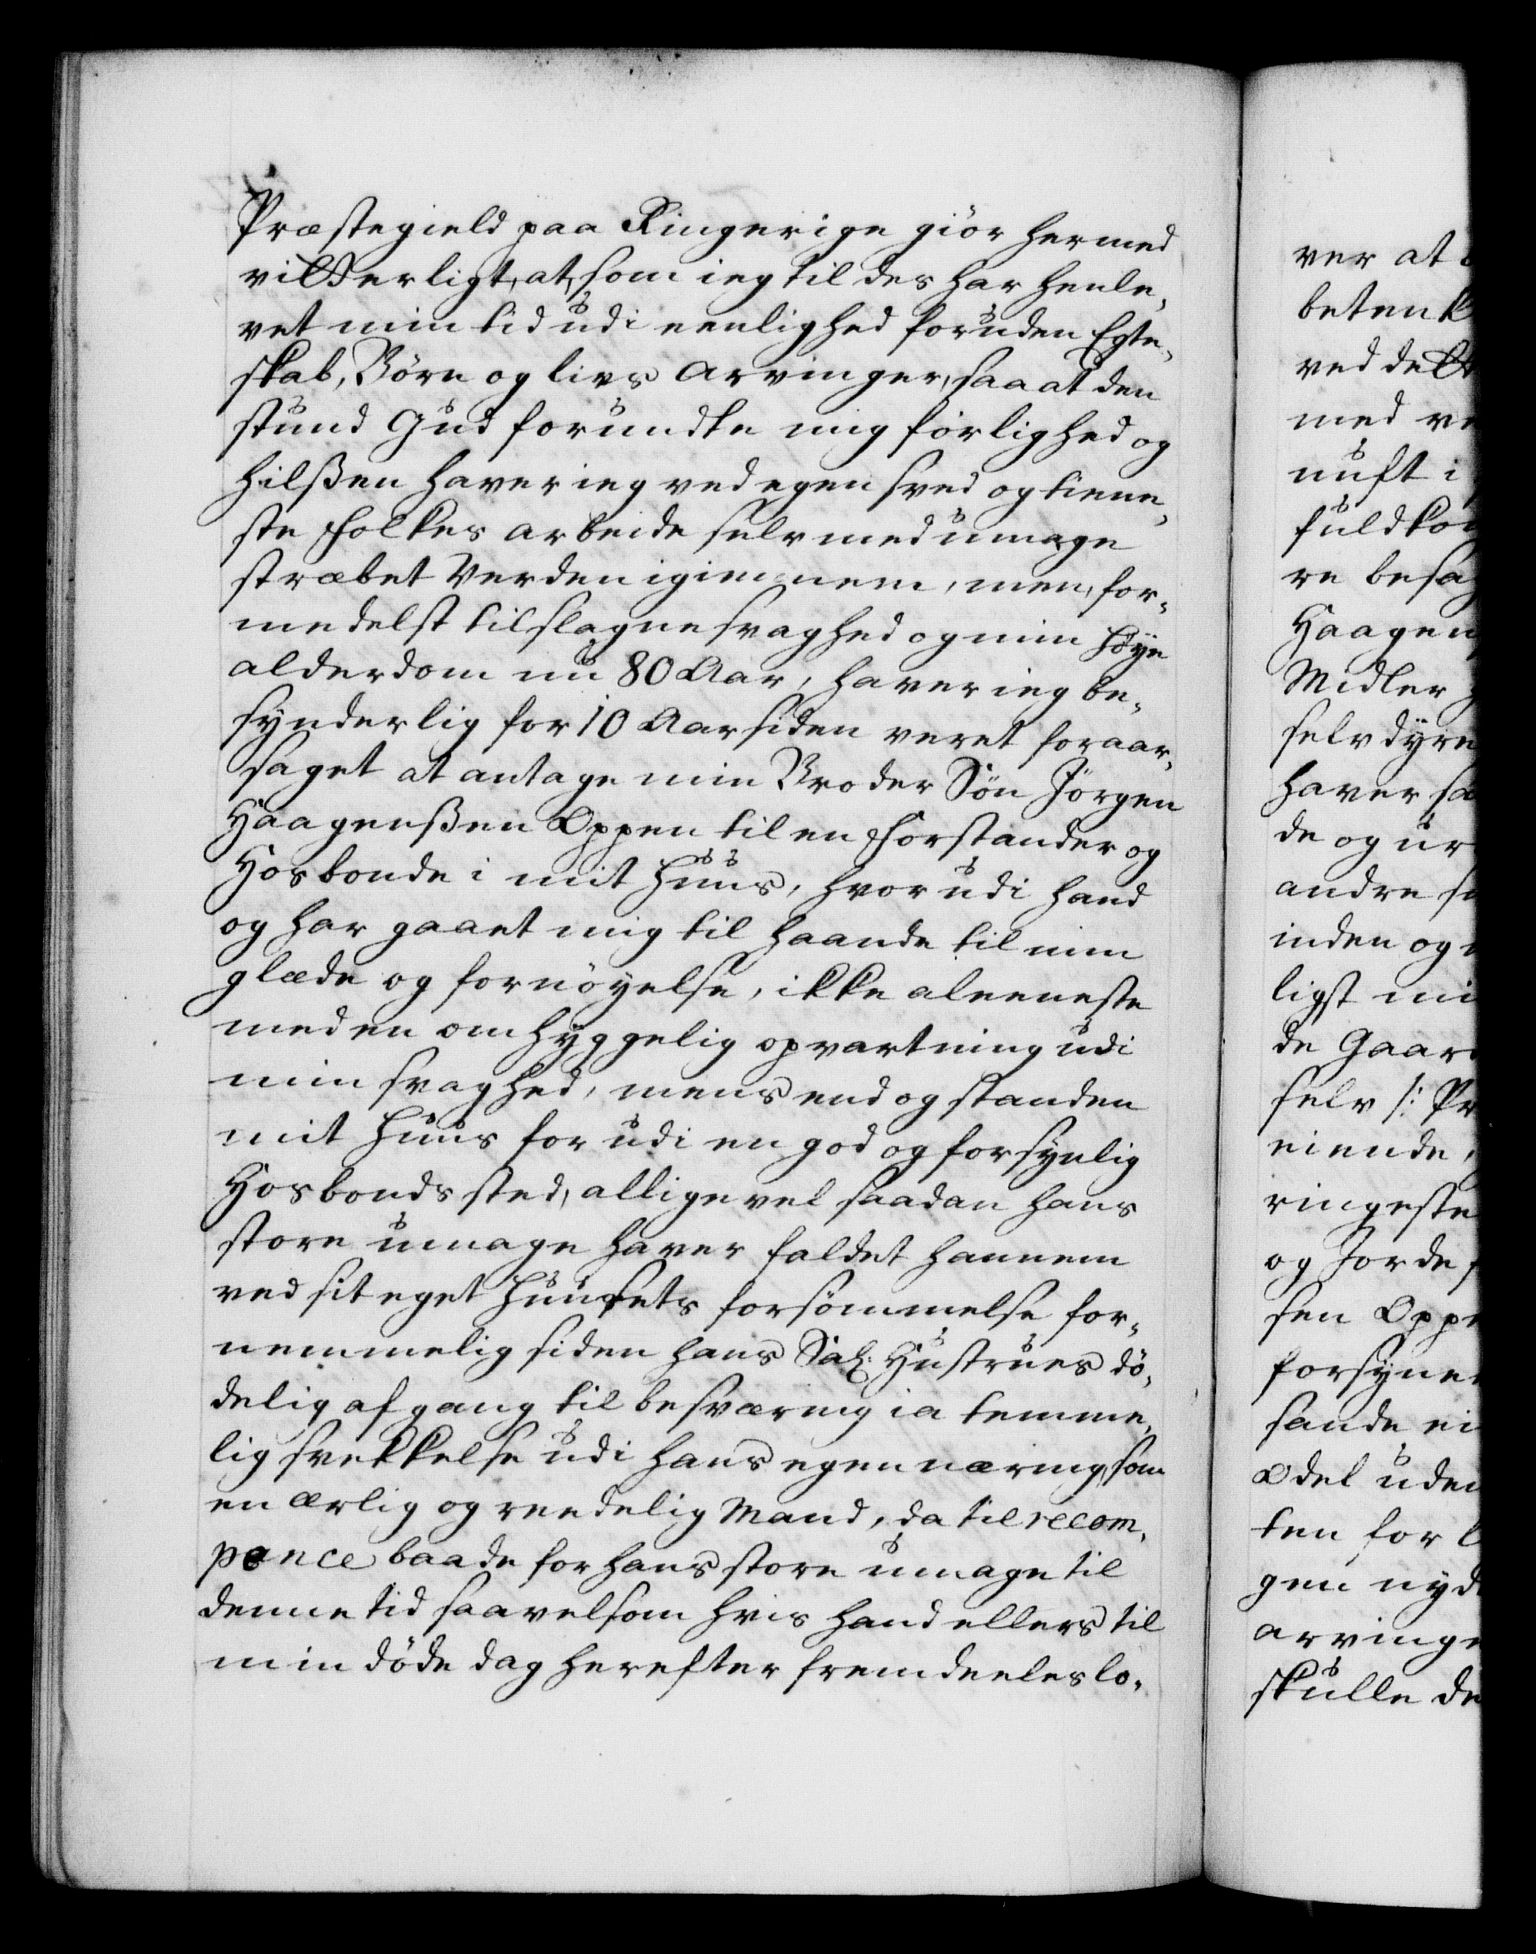 Præstegield paa Ringerige giör hermed
vitterligt, at, som ieg til des har henle,
vet min tid udi eenlighed foruden Egte,
skab, Börn og livs Arvinger, saa at den
stund Gud forundte mig förlighed og
hilsßen haver ieg ved egen sved og tiene,
ste Folkes arbeide selv med umage
stræbet Verden igiennem, men, for,
medelst tilslagne svaghed og min höye
alderdom nu 80 Aar, haver ieg be,
synderlig for 10 Aar siden veret foraar,
saget at antage min Broder Sön Jörgen
Haagenßen Oppen til en Forstander og
Hosbonde i mit Huus, hvor udi hand
og har gaaet mig til haande til min
glæde og fornöyelse, ikke aleeneste
med en omhyggelig opvartning udi
min svaghed, mens end og standen
mit Huus for udi en god og forsynlig
Hosbonds sted, alligevel saadan hans
store umage haver faldet hannem
ved sit eget Huusets forsömmelse for,
nemmelig siden hans Sal: Hustrues dö,
delig afgang til besværing ia temme,
lig svekkelse udi hans egen næring, som
en ærlig og reedelig Mand, da til recom,
pence baade for hans store umage til
denne tid saavelsom hvis hand ellers til
min döde dag herefter fremdeeles lo,
ver at
beten
ved de
med
nuft i
fuldko
re besa
Haagen
Midler
selv dyre
haver sa
de og ur
andre s
inden og
ligst mi
de Gaar
selv /: Pr
eiende,
ringeste
og Jorde
sen Oppe
forsyne
sande ei
Odel uden
ten for
gen nyd
arvinge
skulle de